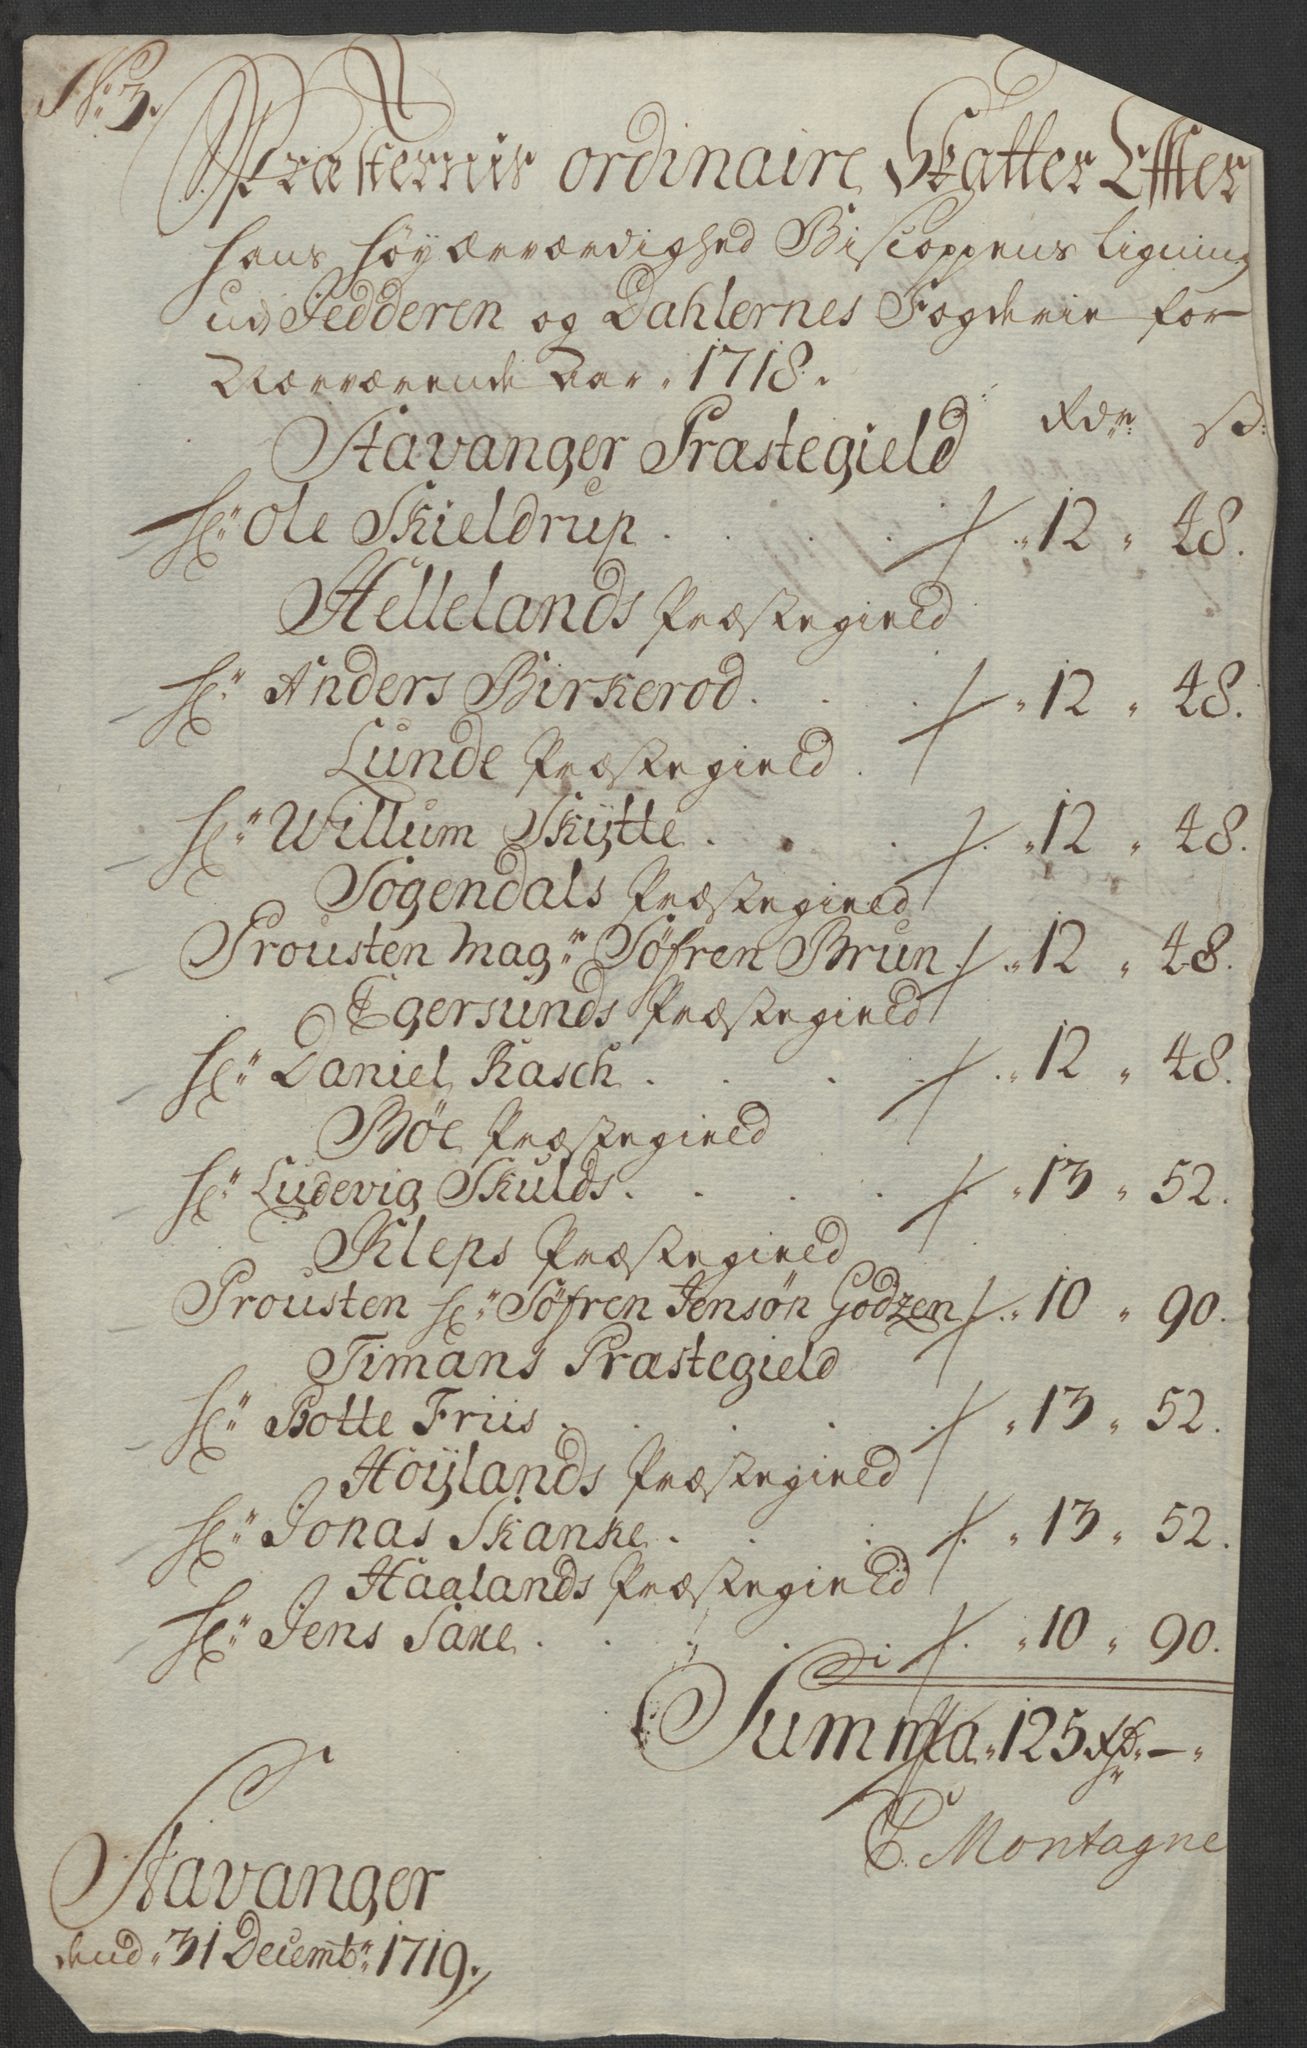 No: 3.
Præsternis ordinaire Skatter Effter
Hans Høyærværdighed Biscoppens Ligning
udj Jedderen og Dahlernes Fogderie for
Nærværende Aar 1718.
Rdr: ß:
Stavanger Præstegield
Hr: Ole Skieldrup . . . . 12 " 48.
Hellelands Præstegield
Hr: Anders Birkerod . . . 12 " 48.
Lunde Præstegield
Hr: Willum Skytte . . . 12 " 48.
Sogendals Præstegield
Prousten Magr: Søfren Brun . 12 " 48.
Egersunds Præstegield
Hr: Daniel Rasch . . . 12 " 48.
Bøe Præstegield
Hr: Ludevig Skulds . . . . 13 " 52.
Kleps Præstegield
Prousten Hr: Søfren Jensøn Godzen . 10 " 90.
Timans Præstegield
Hr: Botte Friis . . . . 13 " 52.
Høylands Præstegield
Hr: Jonas Skanke . . . 13 " 52.
Haalands Præstegield
Hr: Jens Saxe . . . . 10 " 90.
Summa 125 Rdr: —
C. Montagne
Stavanger
dend 31 Decembr: 1719.